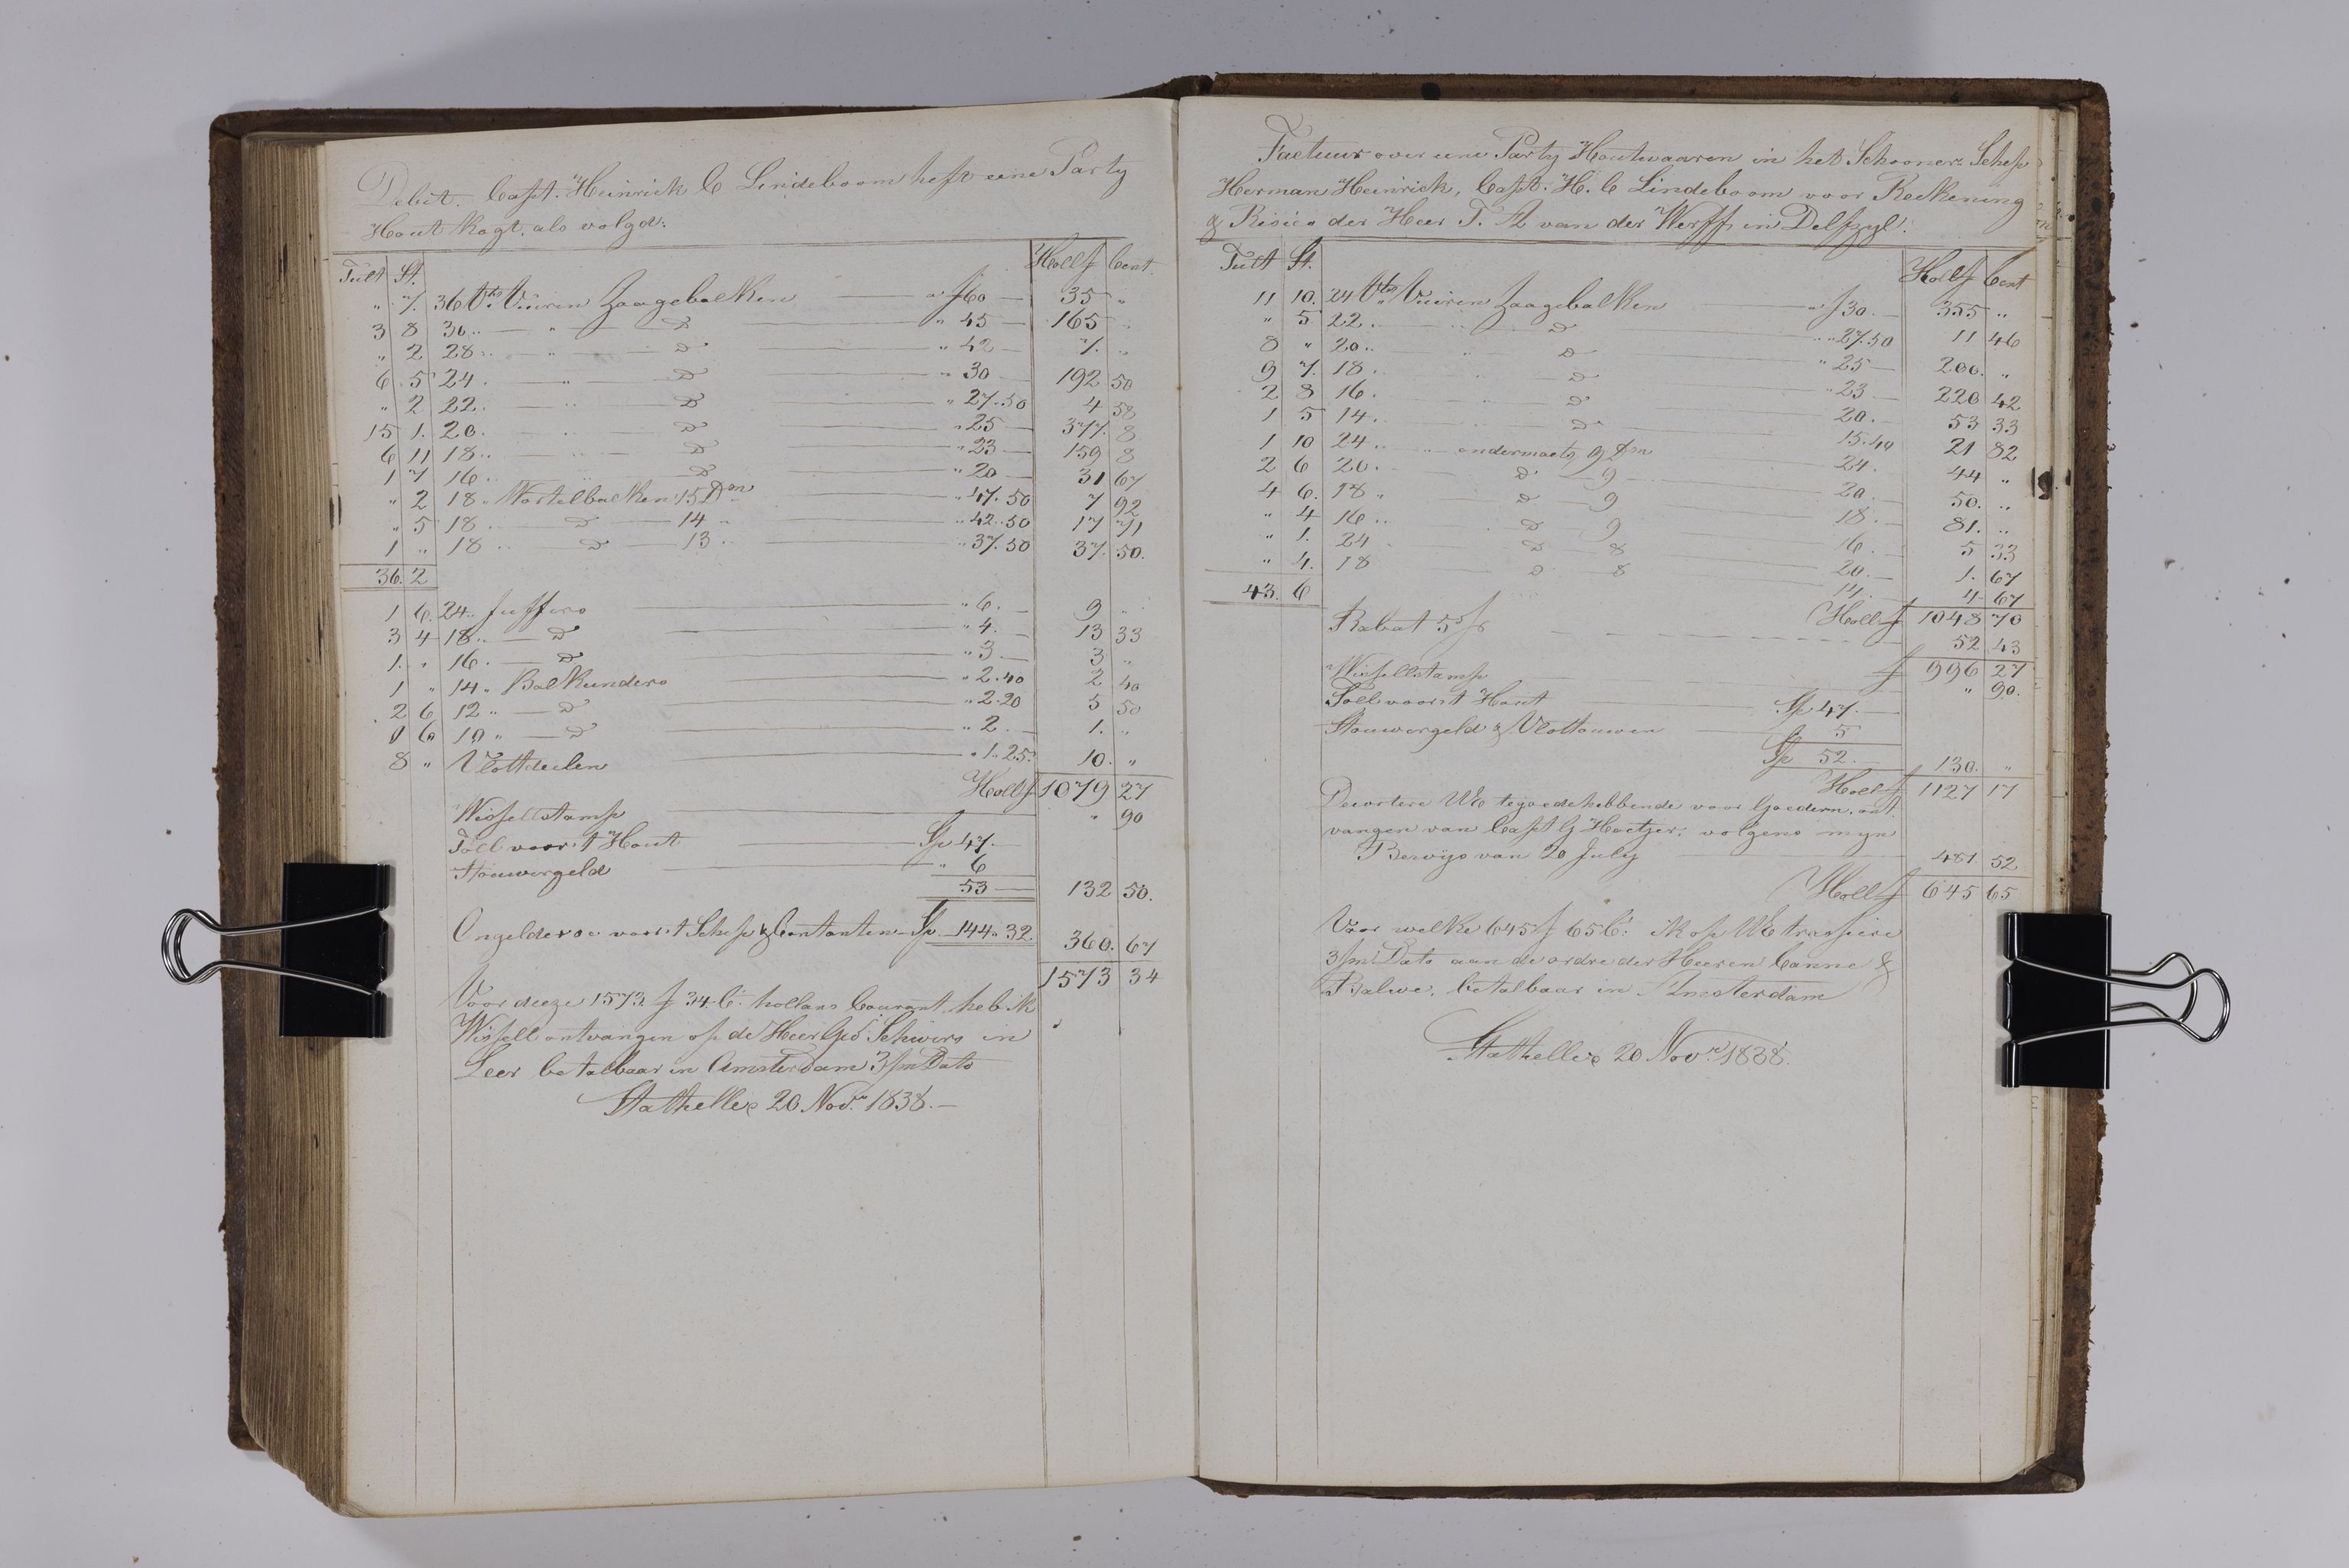 Debit. Capt. Heinrich C Lindeboom heft eene Party
Hout kogt. als volgd:
Tult St. Holl f Cent
" 7. 36 Vts Vuiren Zaagebalken " f 60 — 35 "
3 8 30 " " D " 45 — 165 "
" 2 28 " " D " 42 — 7. "
6 5 24 " D " 30 192 50
" 2 22 " D " 27.50 4 58
15 1. 20. " D " 25 — 377. 8
6 11 18 " " D " 23 — 159 8
1 7 16 " " D " 20 — 31 67
" 2 18 " Wortelbalken 15 Dm " 47.50 7 92
" 5 18 " D 14 " " 42.50 17 71
1 " 18 " D 13 " " 37.50 37. 50.
36. 2
1 6. 24 " Juffers " 6. — 9 "
3 4 18 " D " 4. — 13 33
1. " 16. D " 3 — 3 "
1 " 14 " Balkunders " 2.40 2 40
2 6 12 " D " 2.20 5 50
" 6 10 " D " 2. — 1. "
8 " Vlottdeelen " 1.25. 10. "
Holl f 1079 27
Wissellstamp " 90
Toll voor 't Hout Sp 47. —
Stouwergeld " 6
53 — 132 50.
Ongelder voor 't Schip & Contanten Sp. 144.32. 360. 67
1573 34
Voor deeze 1573 f 34 C: hollans Courant heb ik
Wissell ontvangen op de Heer Schwers in
Leer betalbaar in Amsterdam 3/m Dato
Stathelle 20 Novr. 1838. —
Factuur over eene Party Houtwaaren in het Schooner Schip
Herman Heinrich, Capt: H. C Lindeboom voor Reekening
& Risico der Heer T. A van der Werff in Delfzyl:
Tult St. Holl f Cent
11 10. 24 Vts Vuiren Zaagebalken " f 30. — 355 "
" 5 22. " D " 27.50 11 46
8 " 20 " " D " 25 — 200. "
9 7. 18. " D " 23 — 220 42
2 8 16. " D 20. — 53 33
1 5 14. " D 15.40 21 82
1 10 24 " " ondermaets 9 Dm 24. 44 "
2 6 20. D 9 20. — 50. "
4 6. 18 " D 9 18. — 81. "
" 4 16 " D 9 16. — 5 33
" 1. 24 D 8 20. — 1. 67
" 4. 18 D 8 14. — 4 67
43. 6 Holl f 1048 70
Rabat 5 % 52 43
f 996 27
Wissellstamp " 90.
Toll voor 't Hout Sp 47. —
Stouwergeld & Vlottouwen 5
Sp 52. — 130. "
Holl f 1127 17
Decortere UE tegoedehebbende voor Goedern, ont
vangen van Capt G Hoetzer, volgens myn
Bewys van 20 July 481. 52
Holl f 645 65
Voor welke 645 f 65 C: ik op UE trassiere
3/m Dato aan de ordre der Heeren Canne &
Balwe, betalbaar in Amsterdam
Stathelle 20 Novr. 1838.